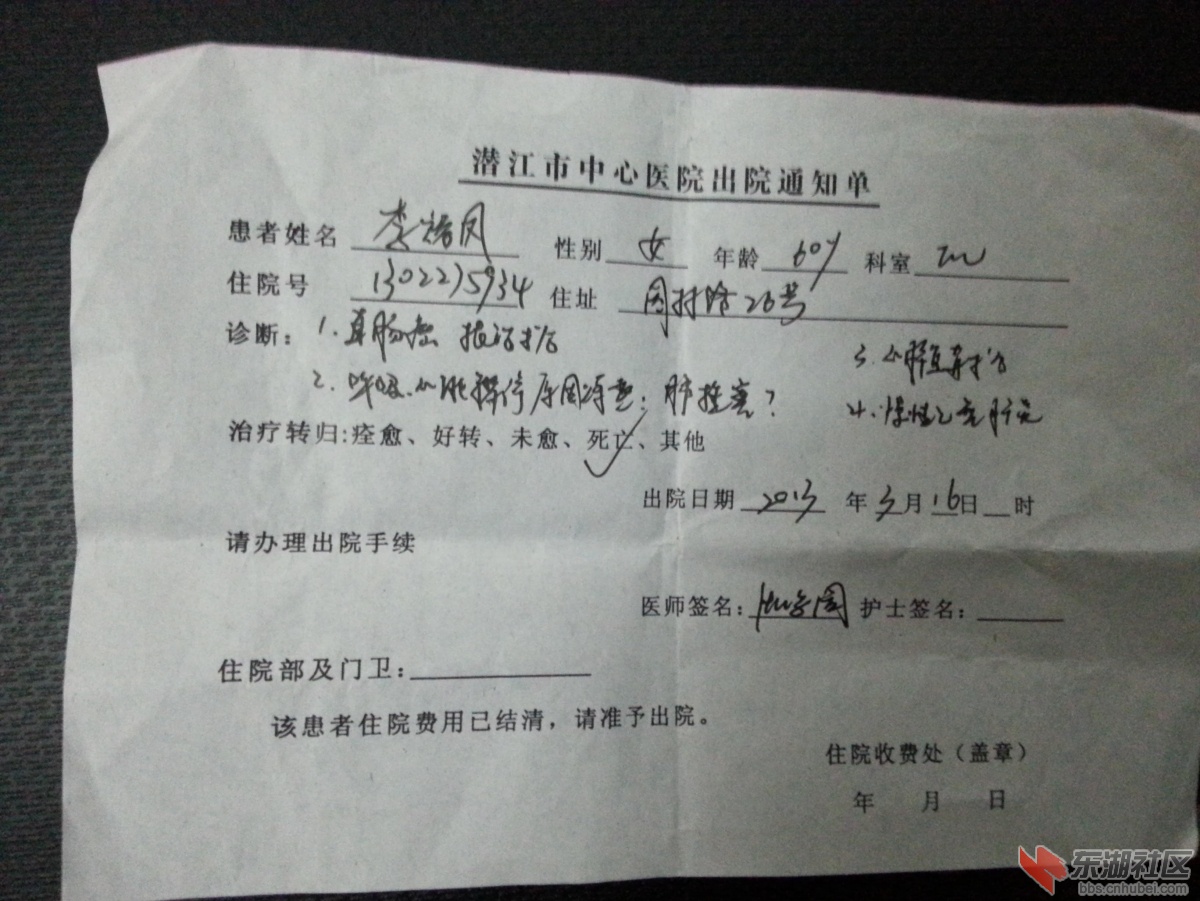 潜江市中心医院出院通知单
患者姓名 李 凤 性别 女 年龄 60岁 科室
住院号 1302275934 住址 周村 26号
诊断: 1. 直肠癌 根治术后
2. 呼吸心跳骤停原因待查:肺栓塞?
3. 心 术后
4. 慢性乙型肝炎
治疗转归:痊愈、好转、未愈、死亡、其他
出院日期 2013 年 3 月 16 日 时
请办理出院手续
医师签名: 护士签名:
住院部及门卫:
该患者住院费用已结清,请准予出院。
住院收费处(盖章)
年 月 日
东湖社区
bbs.cnhubei.com